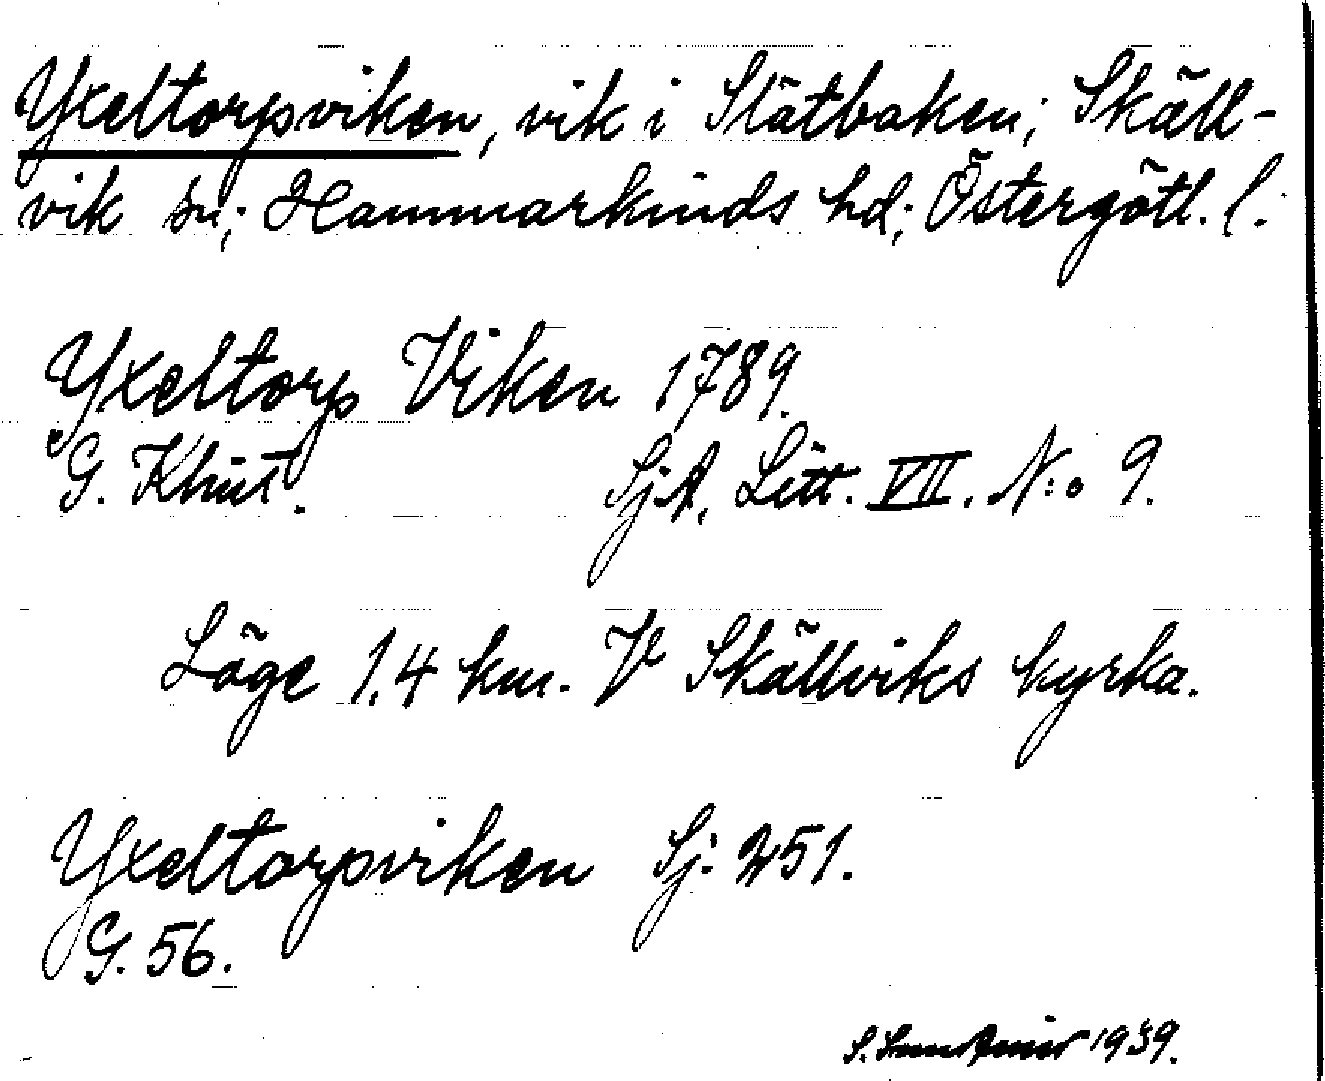 Yxeltorpsviken, vik i Slätbaken; Skäll-
vik sn; Hammarkinds hd; Östergötl. l.
Yxeltorps Viken 1789.
G. Khist. SjA, Litt. VII. N:o 9.
Läge 1,4 km. V Skällviks kyrka.
Yxeltorpsviken Sj. 251.
G. 56.
S. 1939.